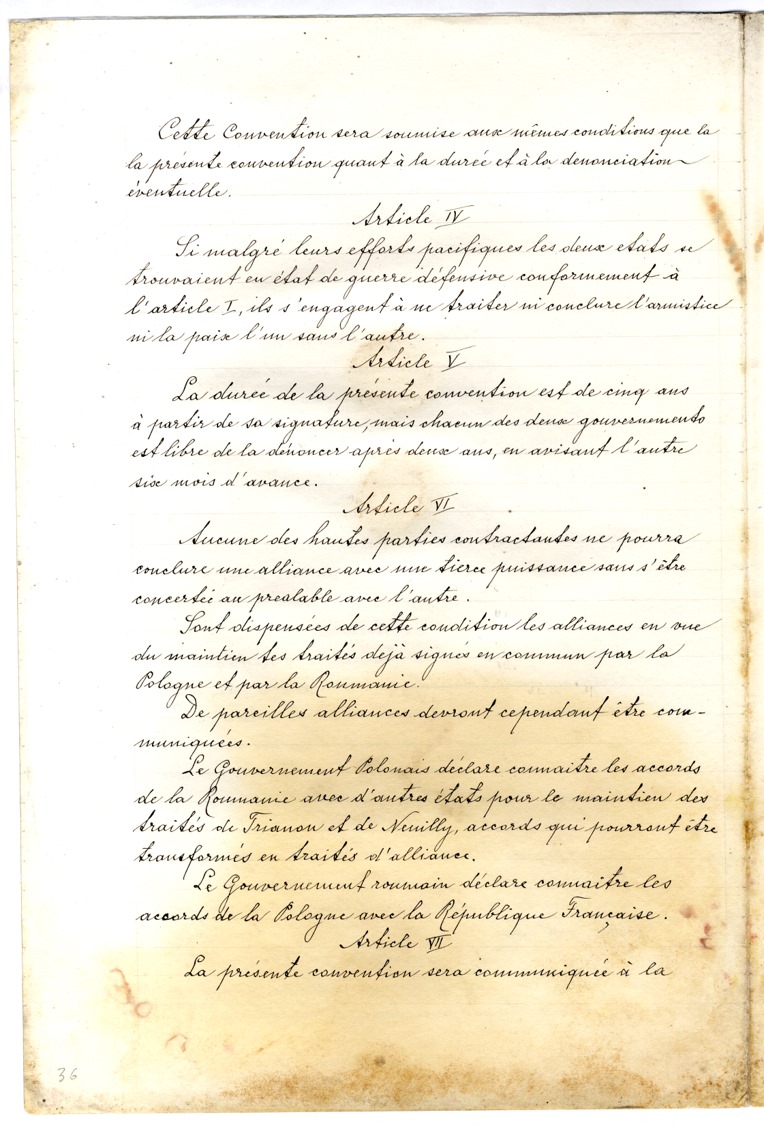 Cette Convention sera soumise aux mêmes conditions que la
la présente convention quant à la durée et à la denonciation
éventuelle.
Article IV
Si malgré leurs efforts pacifiques les deux etats se
trouvaient en état de guerre défensive conformement à
l'article I, ils s'engagent à ne traiter ni conclure l'armistice
ni la paix l'un sans l'autre.
Article V
La durée de la présente convention est de cinq ans
à partir de sa signature, mais chacun des deux gouvernements
est libre de la dénoncer après deux ans, en avisant l'autre
six mois d'avance.
Article VI
Aucune des hautes parties contractantes ne pourra
conclure une alliance avec une tierce puissance sans s'être
concertée au prealable avec l'autre.
Sont dispensées de cette condition les alliances en vue
du maintien tes traités dejà signés en commun par la
Pologne et par la Roumanie.
De pareilles alliances devront cependant être com-
muniquées.
Le Gouvernement Polonais déclare connaitre les accords
de la Roumanie avec d'autres états pour le maintien des
traités de Trianon et de Neuilly, accords qui pourront être
transformés en traités d'alliance.
Le Gouvernement roumain déclare connaitre les
accords de la Pologne avec la République Française.
Article VII
La présente convention sera communiquée à la
36